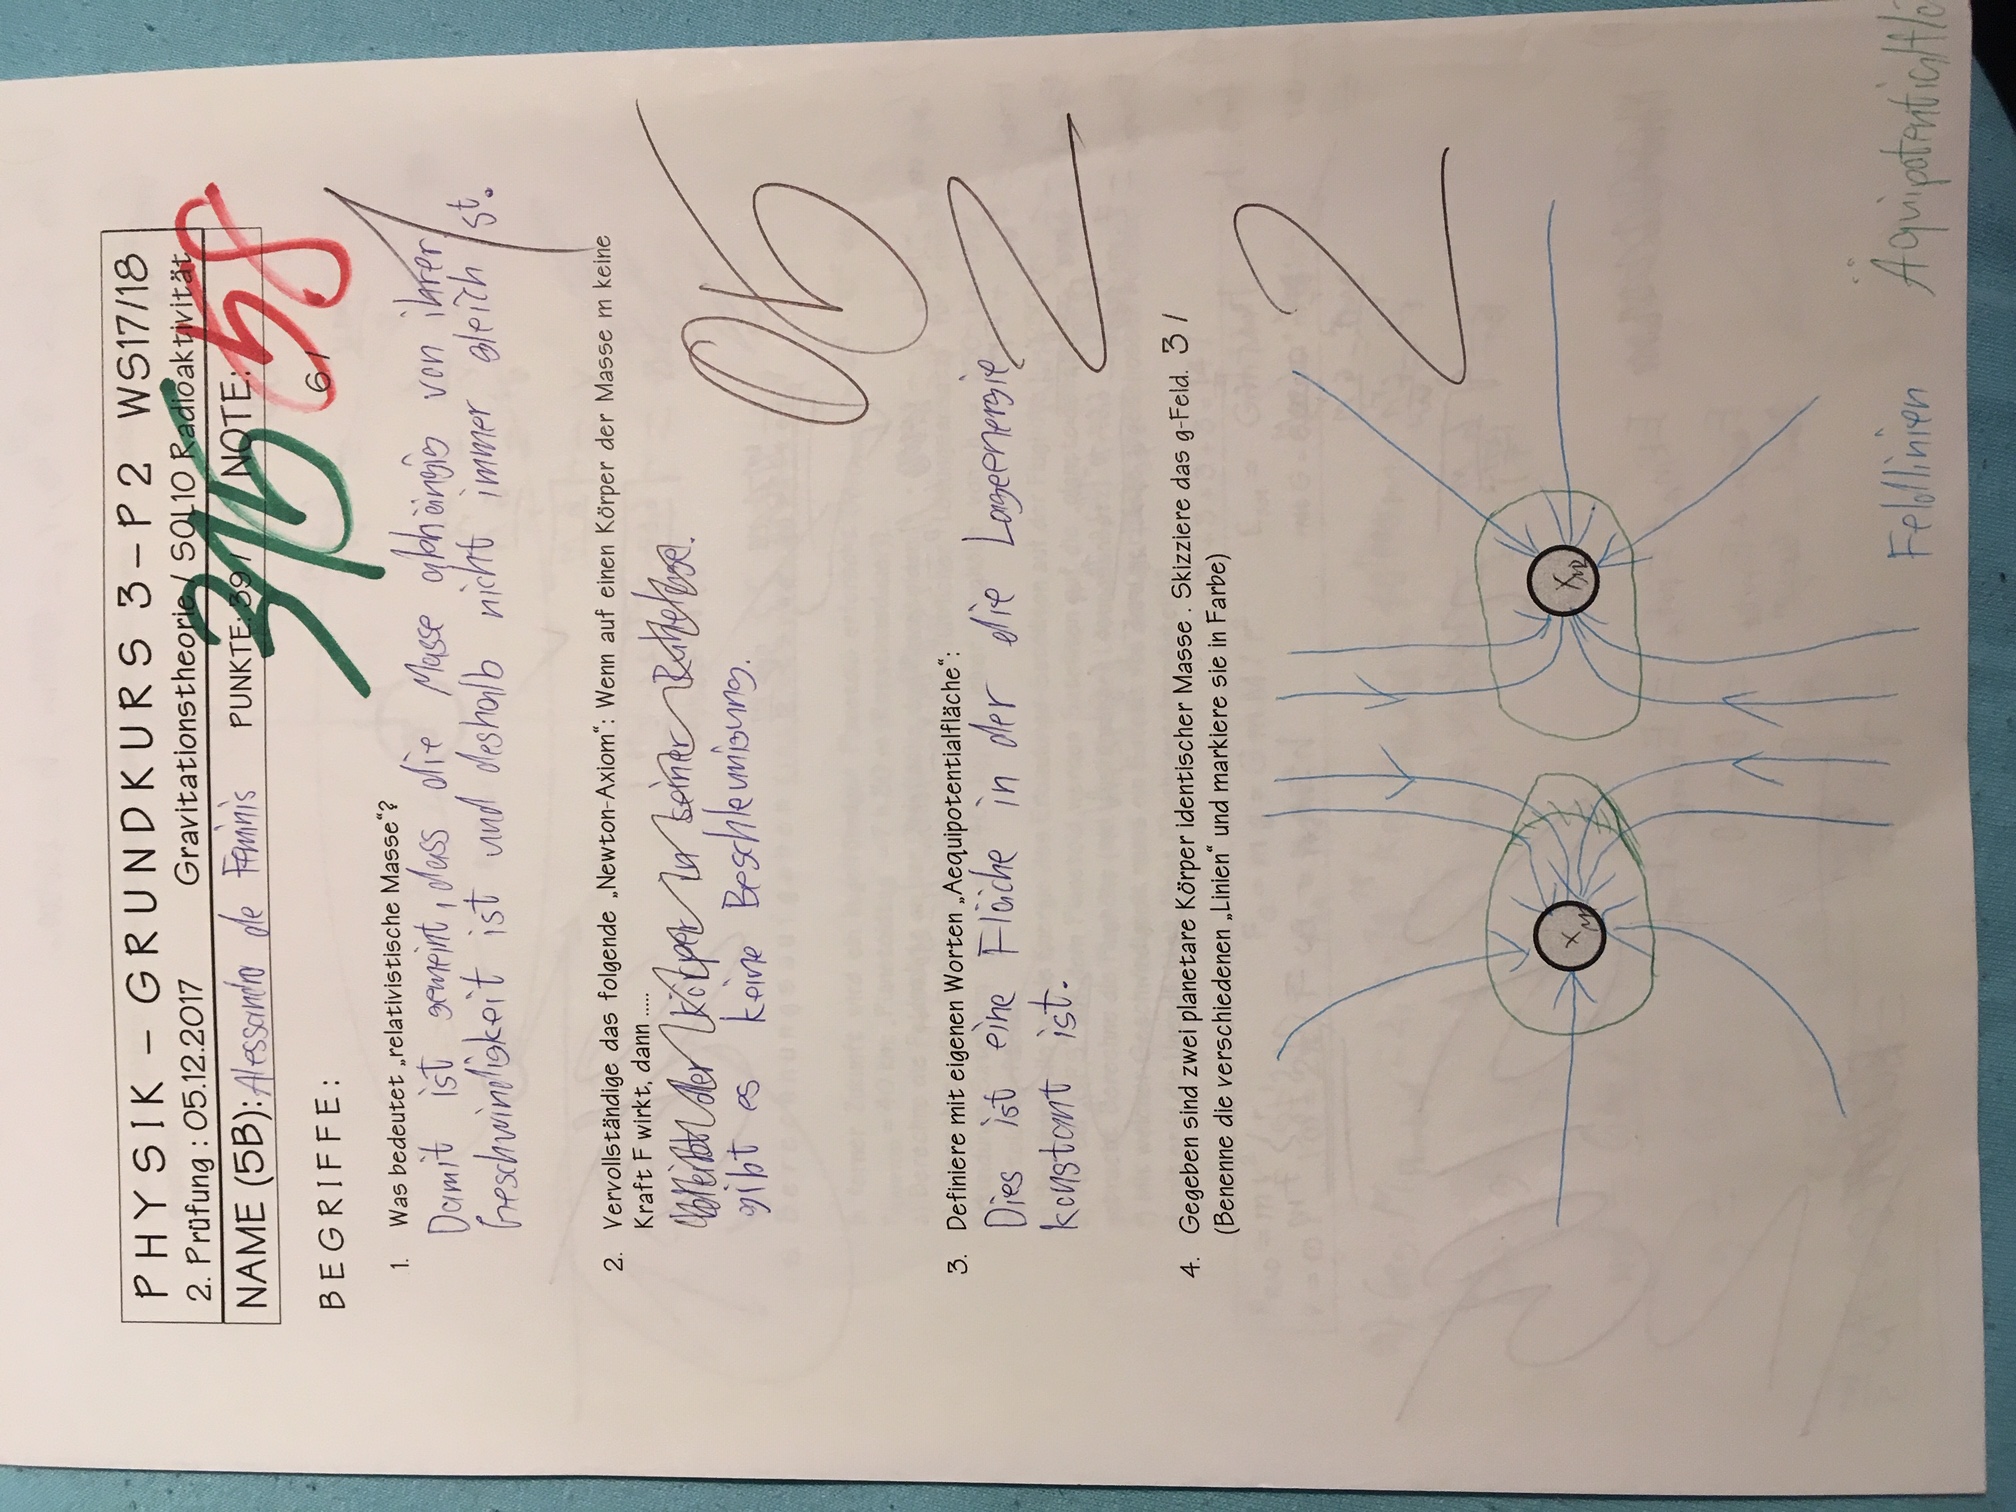 PHYSIK – GRUNDKURS 3–P2 WS17/18
2. Prüfung : 05.12.2017 Gravitationstheorie / SOL10 Radioaktivität
NAME (5B): Alessandro de Feminis PUNKTE: 39 / 315 NOTE: 5.8
BEGRIFFE: 6 /
1. Was bedeutet „relativistische Masse“?
Damit ist gemeint, dass die Masse abhängig von ihrer
Geschwindigkeit ist und deshalb nicht immer gleich ist.
1
2. Vervollständige das folgende „Newton-Axiom“: Wenn auf einen Körper der Masse m keine
Kraft F wirkt, dann .....
bleibt der Körper in seiner Ruhelage.
gibt es keine Beschleunigung.
05
3. Definiere mit eigenen Worten „Aequipotentialfläche“:
Dies ist eine Fläche in der die Lageenergie
konstant ist.
2
4. Gegeben sind zwei planetare Körper identischer Masse . Skizziere das g-Feld. 3 /
(Benenne die verschiedenen „Linien“ und markiere sie in Farbe)
2
Feldlinien Äquipotentialflä